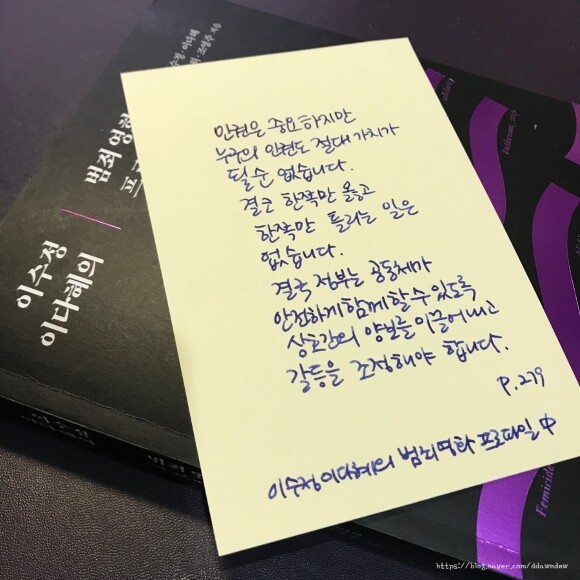 인권은 중요하지만
누구의 인권도 절대 가치가
될 순 없습니다.
결코 한쪽만 옳고
한쪽만 틀리는 일은
없습니다.
결국 정부는 공동체가
안전하게 함께 할 수 있도록
상호간의 양보를 이끌어내고
갈등을 조정해야 합니다.
p.279
이수정 이다혜의 범죄영화 프로파일 中
이수정
이다혜의
범죄 영화
프로
수정·이다혜
조영주 지음
이수정
범죄
Femicide
https://blog.naver.com/ddawndew